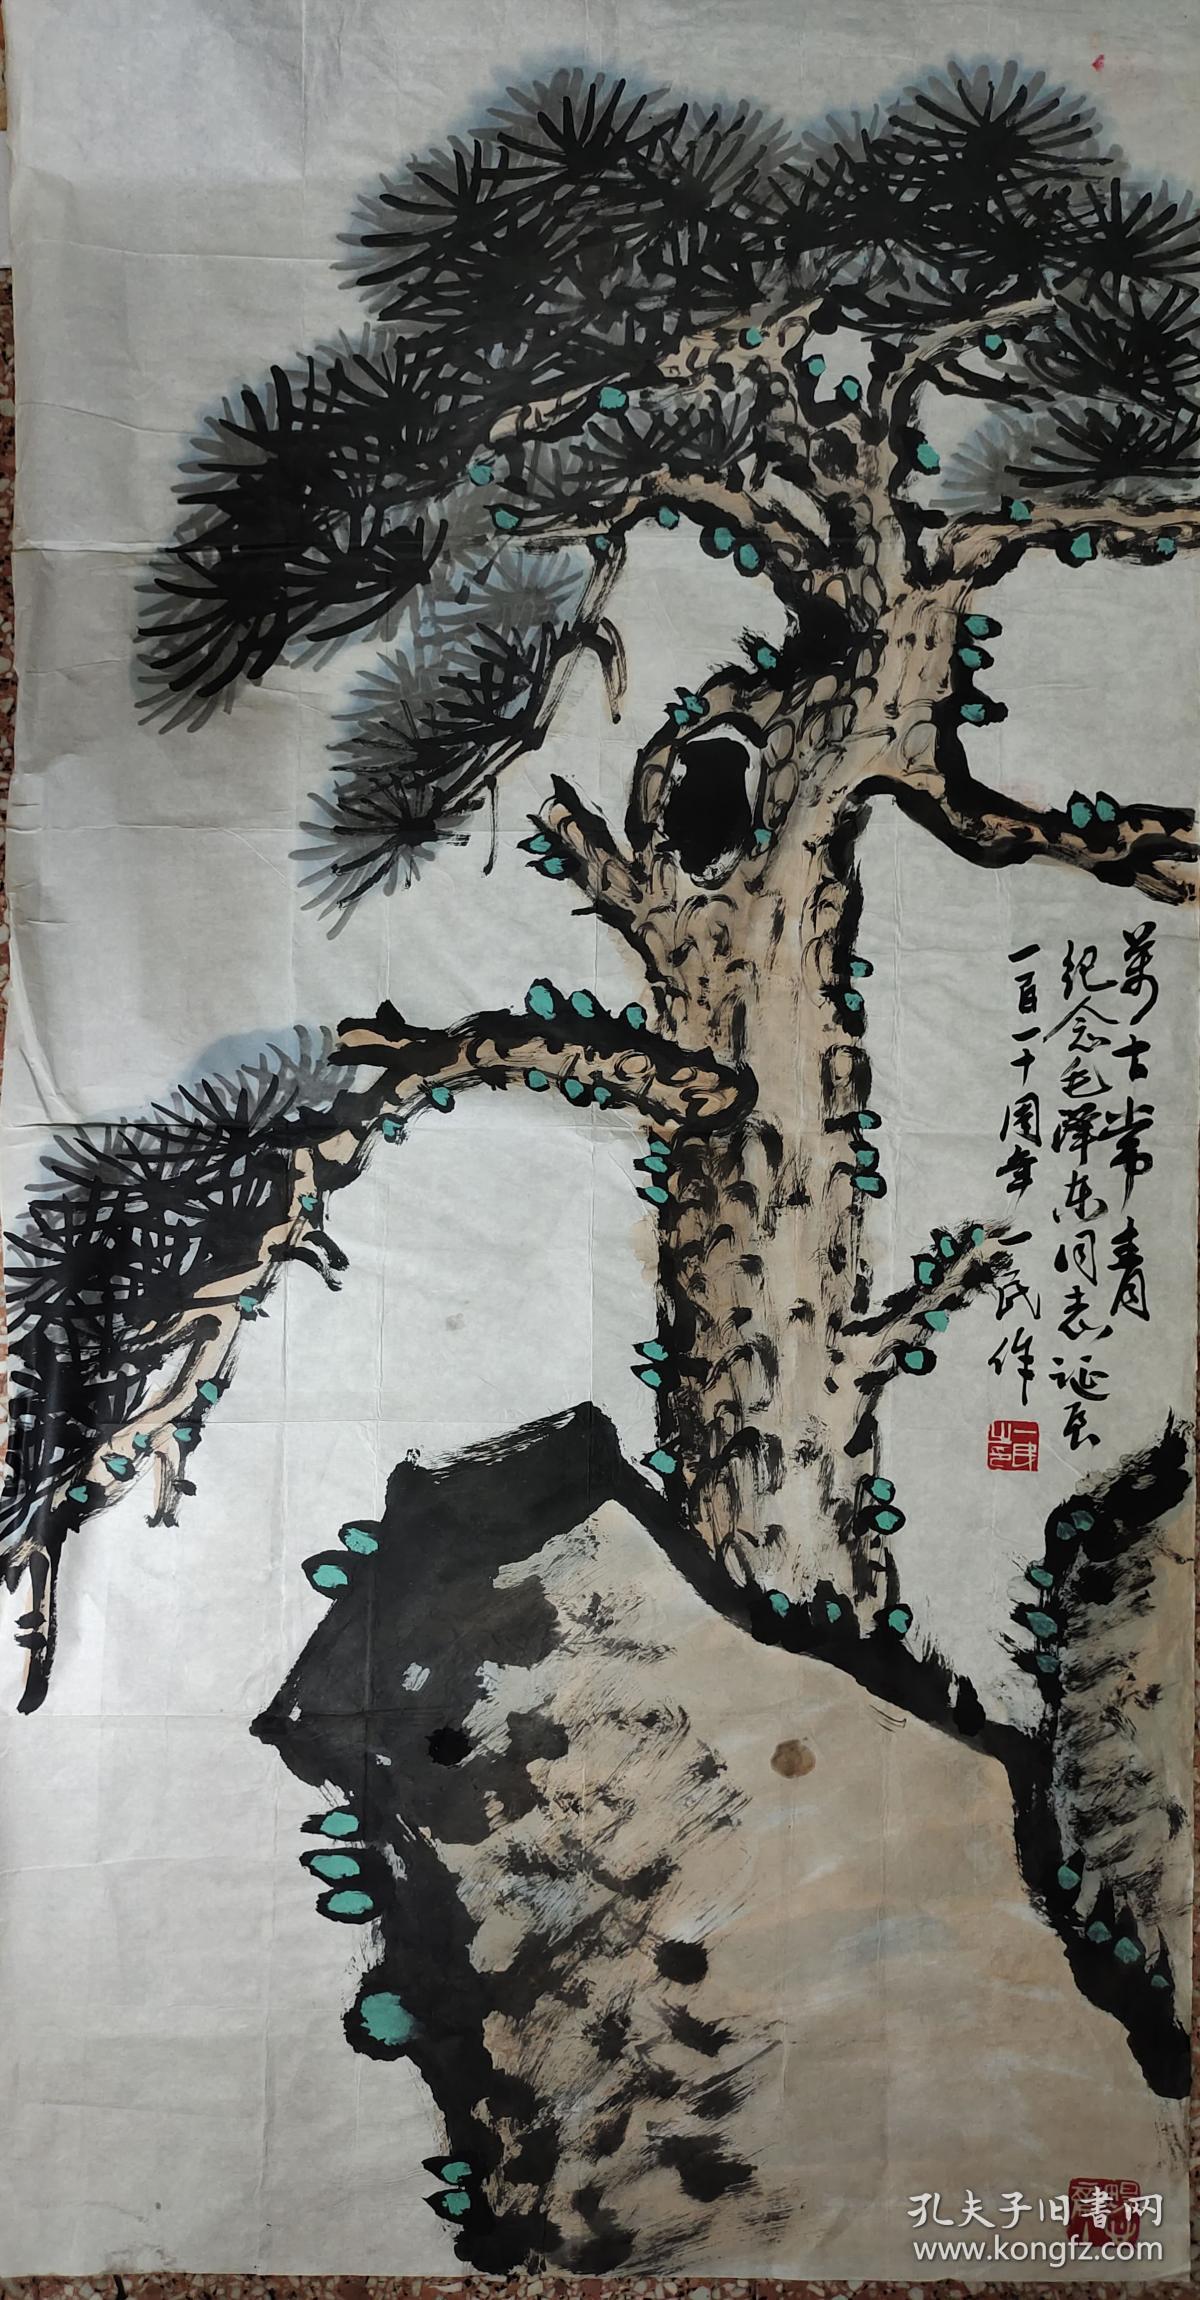 萬古常青
纪念毛泽东同志诞辰
一百一十周年 一民作
一民之印
孔夫子旧书网
www.kongfz.com